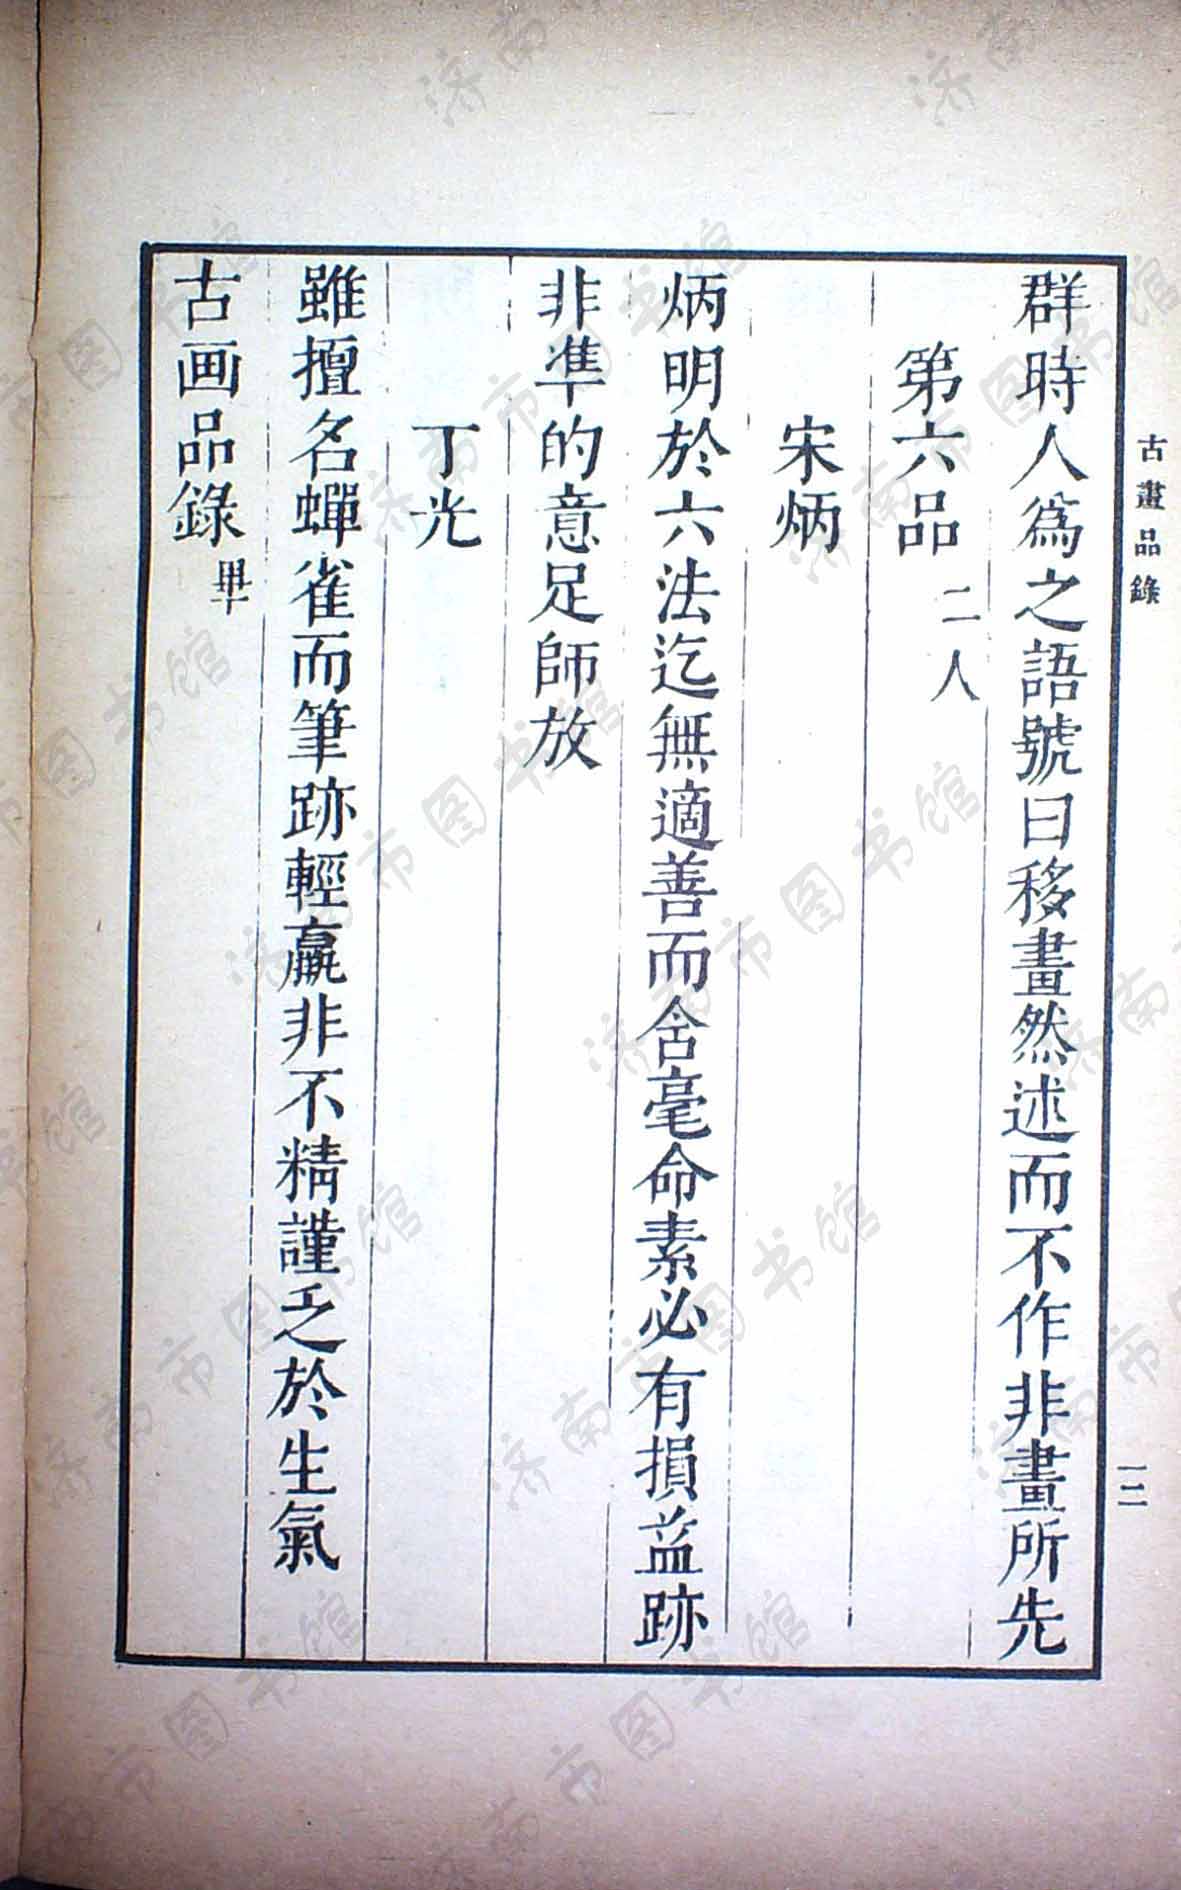 古畫品錄
一二
群時人爲之語號曰移畫然述而不作非畫所先
第六品 二人
宋炳
炳明於六法迄無適善而含毫命素必有損益跡
非準的意足師放
丁光
雖擅名蟬雀而筆跡輕羸非不精謹乏於生氣
古画品錄 畢
济南市图书馆